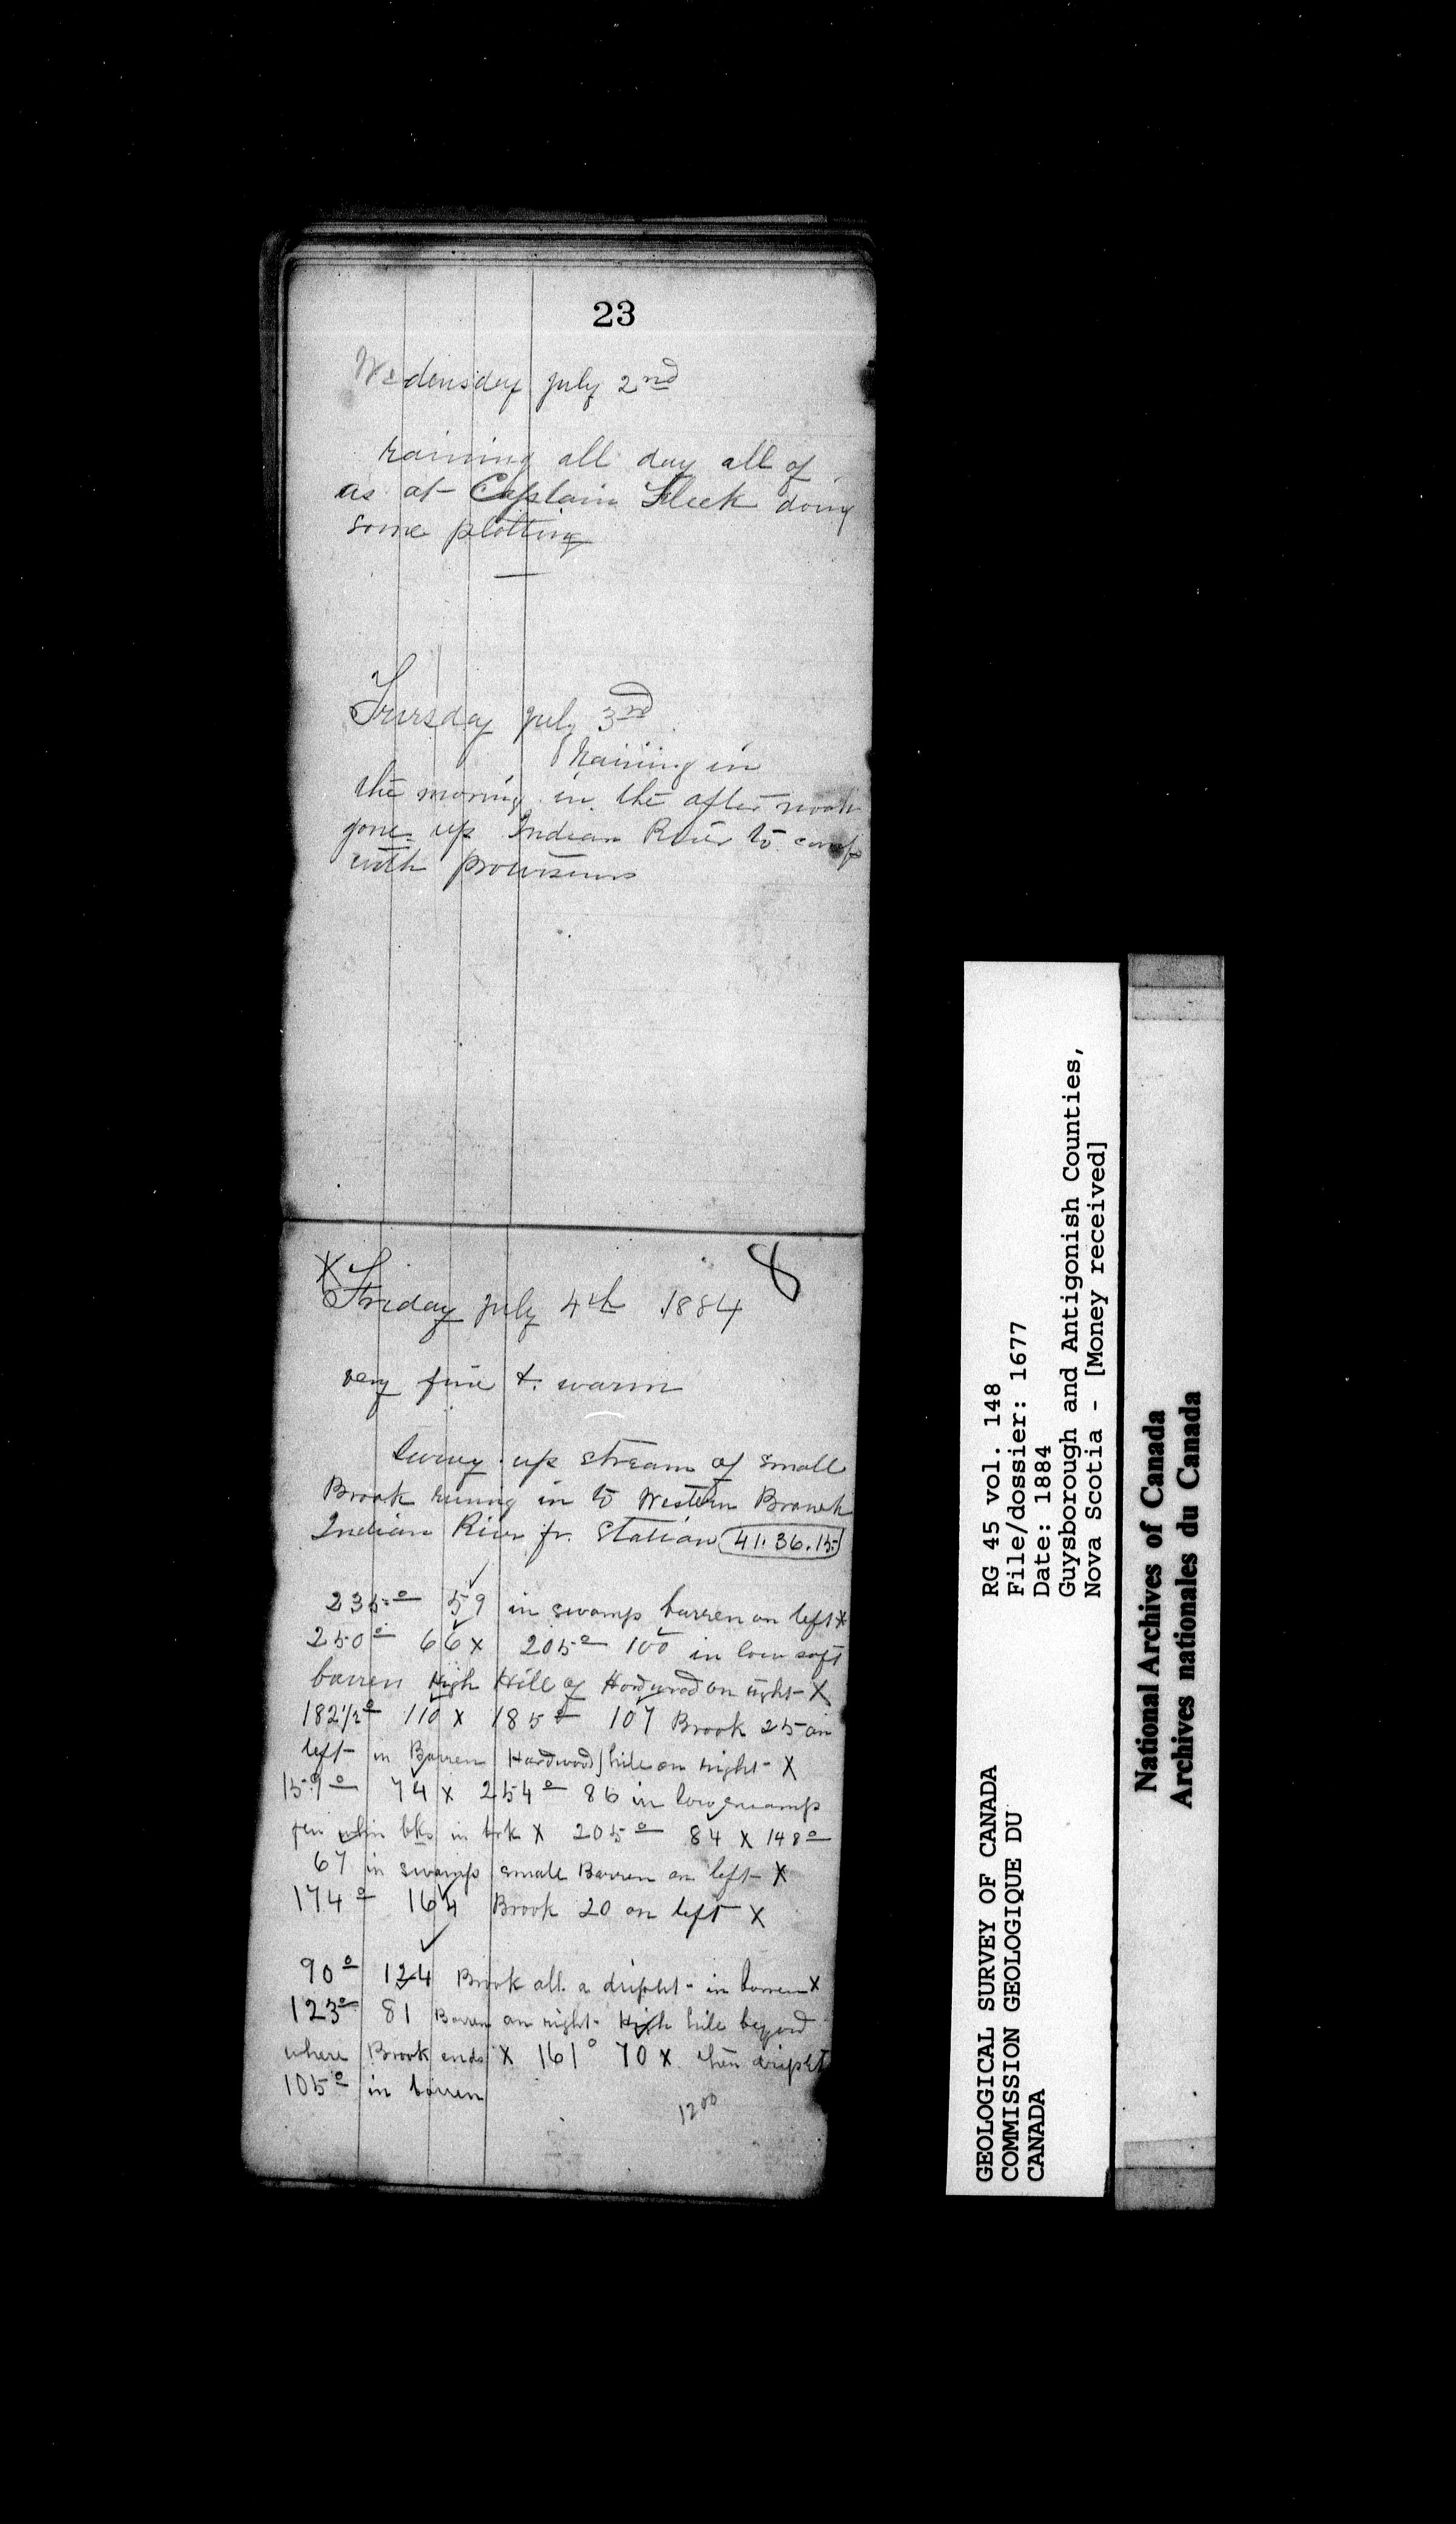 23
Wedensday July 2nd
raining all day all of
as at Captain Fleek doing
some plotting
Thursday July 3rd
Raining in
the morning in the after noon
gone up Indian River to camp
with provisions
8
X Friday July 4th 1884
very fine & warm
Survey up stream of small
Brook runing in to Western Branch
Indian River fr. Station 41.36.15
235° 59 in swamp barren on left X
250° 66 X 205° 100 in low soft
barren High Hill of Hardwood on right X
182 1/2° 110 X 185° 107 Brook 25 on
left in Barren Hardwood hill on right X
159° 74 X 254° 86 in low swamp
bks in brk X 205° 84 X 148°
67 in swamp small Barren on left X
174° 164 Brook 20 on left X
90° 124 Brook all a in barren X
123° 81 Barren on right High hill beyond
where Brook ends X 161° 70 X then
105° in barren
1200
RG 45 vol. 148
File/dossier: 1677
Date: 1884
Guysborough and Antigonish Counties,
Nova Scotia - [Money received]
GEOLOGICAL SURVEY OF CANADA
COMMISSION GEOLOGIQUE DU
CANADA
National Archives of Canada
Archives nationales du Canada